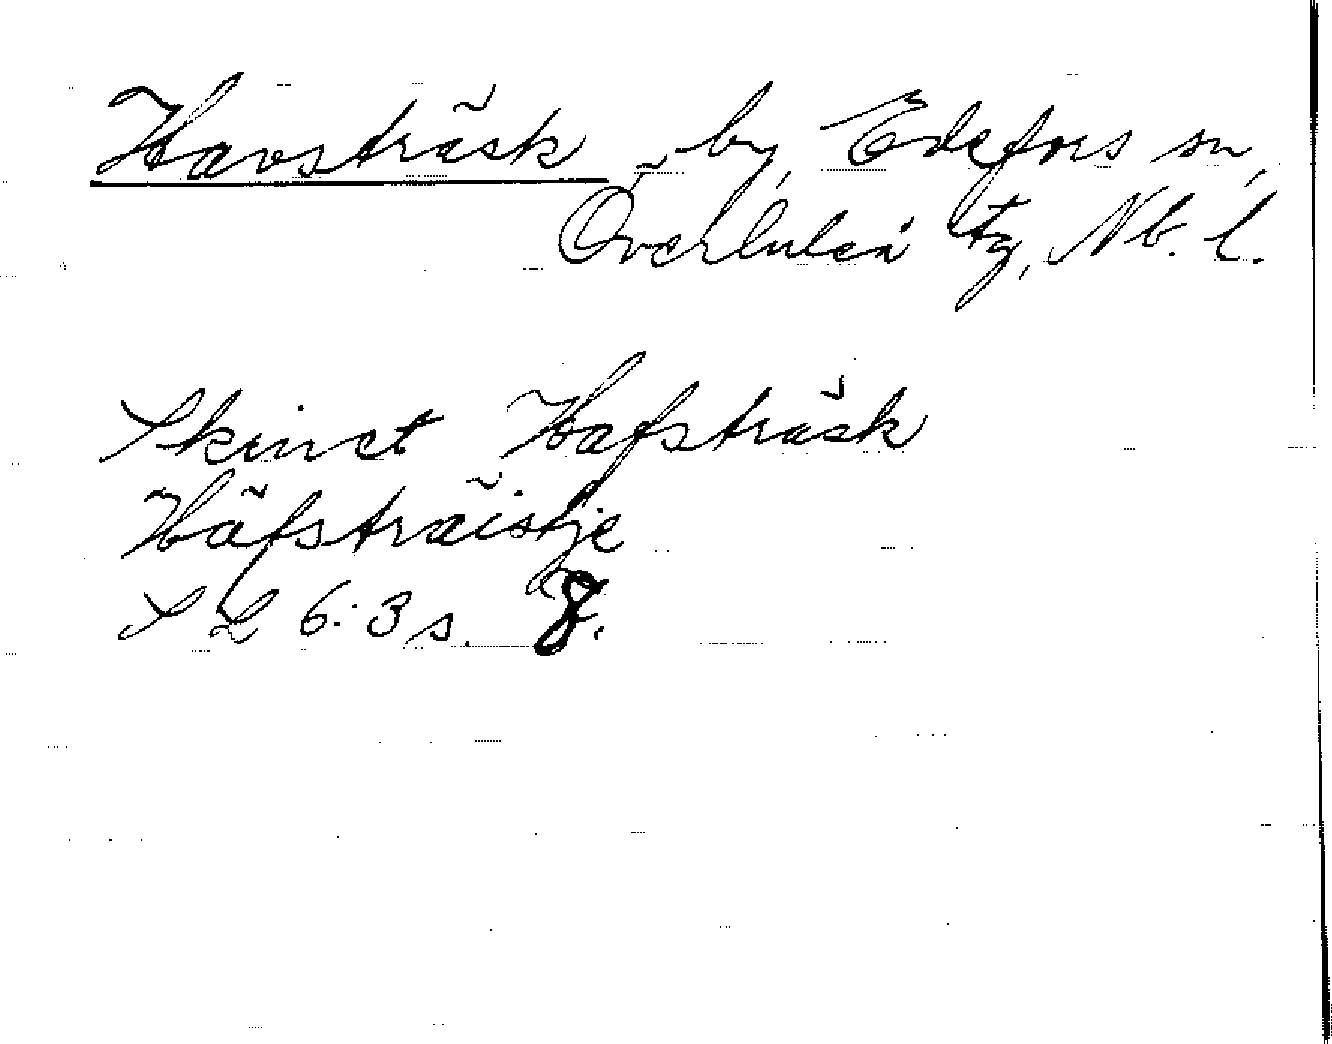 Havsträsk, by, Edefors sn,
Överluleå tg, Nb. l.
Skinet Hafsträsk
Häfsträistje
S L 6:3 s. 8.